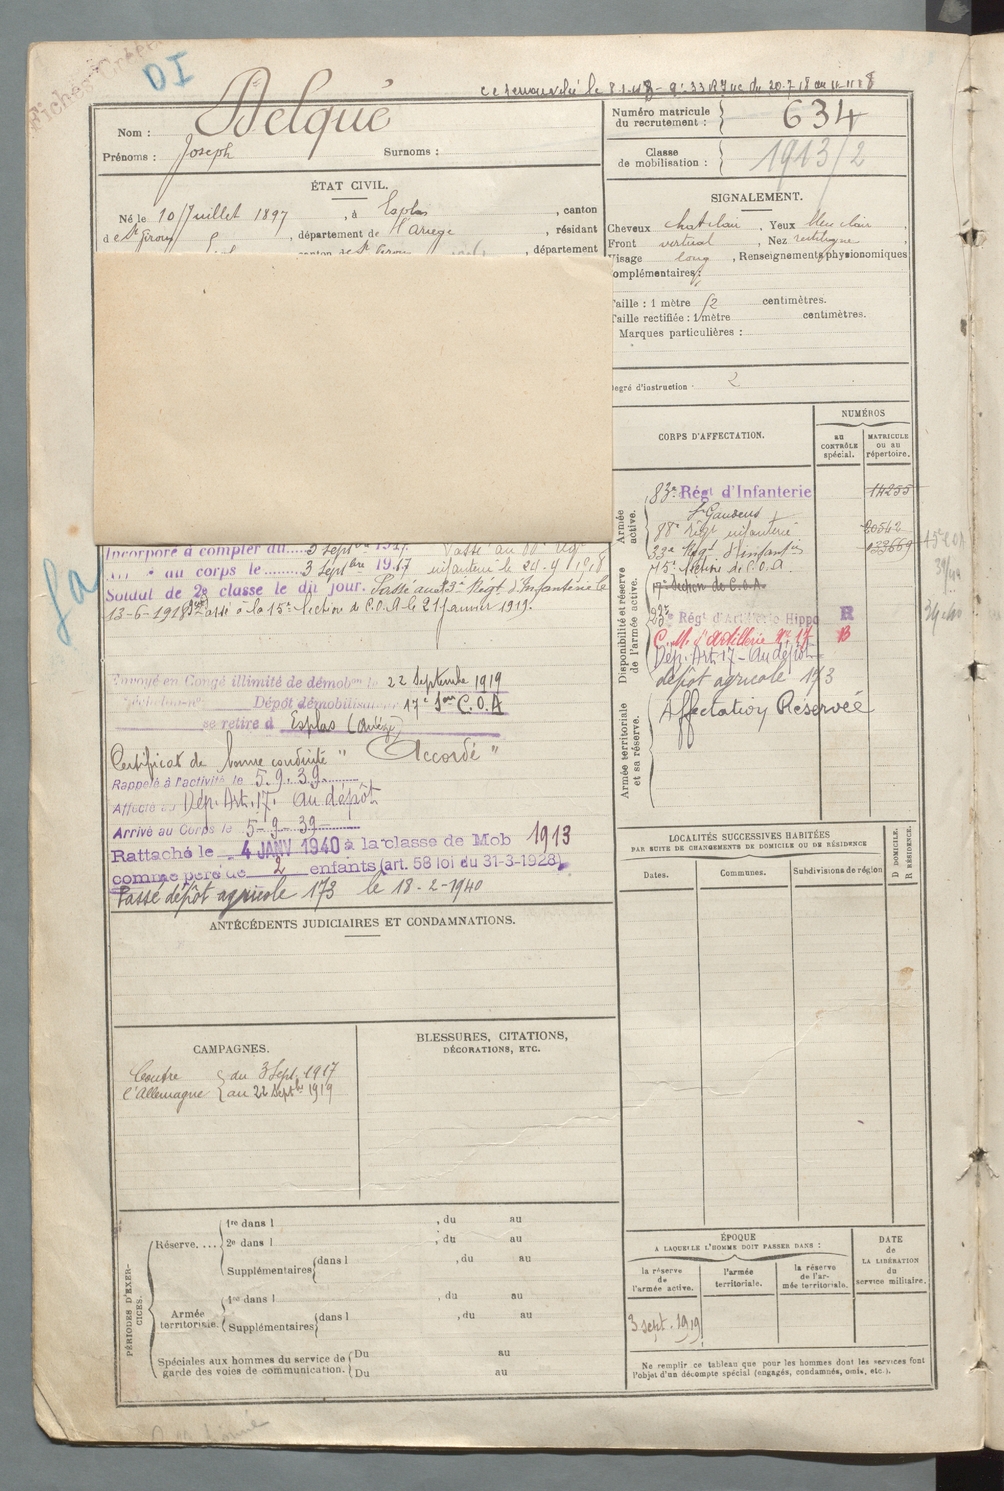 DI
Nom : Delqué
Prénoms : Joseph Surnoms :
Numéro matricule du recrutement : 634
Classe de mobilisation : 1913/2
ÉTAT CIVIL.
Né le 10 Juillet 1897, à Esplas, canton
de St Girons, département de l'Ariège, résidant
canton de St Girons, département
SIGNALEMENT.
Cheveux chat clair, Yeux bleu clair,
Front vertical, Nez rectiligne,
Visage long, Renseignements physionomiques
complémentaires :
Taille : 1 mètre 52 centimètres.
Taille rectifiée : 1 mètre centimètres.
Marques particulières :
Degré d'instruction 2
CORPS D'AFFECTATION.
NUMÉROS
au CONTRÔLE spécial.
MATRICULE ou au répertoire.
Armée active.
83e Régt d'Infanterie 14255
St Gaudens
88e Régt infanterie 20542
33e Régt d'infantie
15e Section de C.O.A.
17e Section de C.O.A.
Disponibilité et réserve de l'armée active.
23e Régt d'Artillerie Hippo R
C. M. d'Artillerie no 17 B
Dép. Art. 17 - Au dépôt
dépôt agricole 173
Armée territoriale et sa réserve.
Affectation Réservée
Incorporé à compter du 3 Septbre 1917. Passé au 88e Régt
au corps le 3 Septbre 1917 infanterie le 24.4.1918
Soldat de 2e classe le dit jour. Passé au 33e Régt d'Infanterie le
13-6-1918. Passé à la 15e Section de C.O.A. le 21 Janvier 1919.
Envoyé en Congé illimité de démobon le 22 Septembre 1919
Dépôt démobilisateur 17e Son C.O.A
se retire à Esplas (Ariège)
Certificat de bonne conduite " Accordé "
Rappelé à l'activité le 5.9.39
Affecté au Dép. Art. 17. au dépôt
Arrivé au Corps le 5-9-39
Rattaché le 4 JANV 1940 à la classe de Mob 1913
comme père de 2 enfants (art. 58 loi du 31-3-1928).
Passé dépôt agricole 173 le 18-2-1940
LOCALITÉS SUCCESSIVES HABITÉES
PAR SUITE DE CHANGEMENTS DE DOMICILE OU DE RÉSIDENCE
Dates.
Communes.
Subdivisions de région
D DOMICILE.
R RÉSIDENCE.
ANTÉCÉDENTS JUDICIAIRES ET CONDAMNATIONS.
CAMPAGNES.
Contre l'Allemagne { du 3 Sept. 1917
au 22 Septbre 1919
BLESSURES, CITATIONS,
DÉCORATIONS, ETC.
PÉRIODES D'EXERCICES.
Réserve....
1re dans l , du au
2e dans l , du au
Supplémentaires { dans l , du au
Armée territoriale.
1re dans l , du au
Supplémentaires { dans l , du au
Spéciales aux hommes du service de garde des voies de communication.
Du au
Du au
ÉPOQUE
A LAQUELLE L'HOMME DOIT PASSER DANS :
la réserve de l'armée active.
l'armée territoriale.
la réserve de l'armée territoriale.
DATE de LA LIBÉRATION du service militaire.
3 sept. 1919
Ne remplir ce tableau que pour les hommes dont les services font
l'objet d'un décompte spécial (engagés, condamnés, omis, etc.).